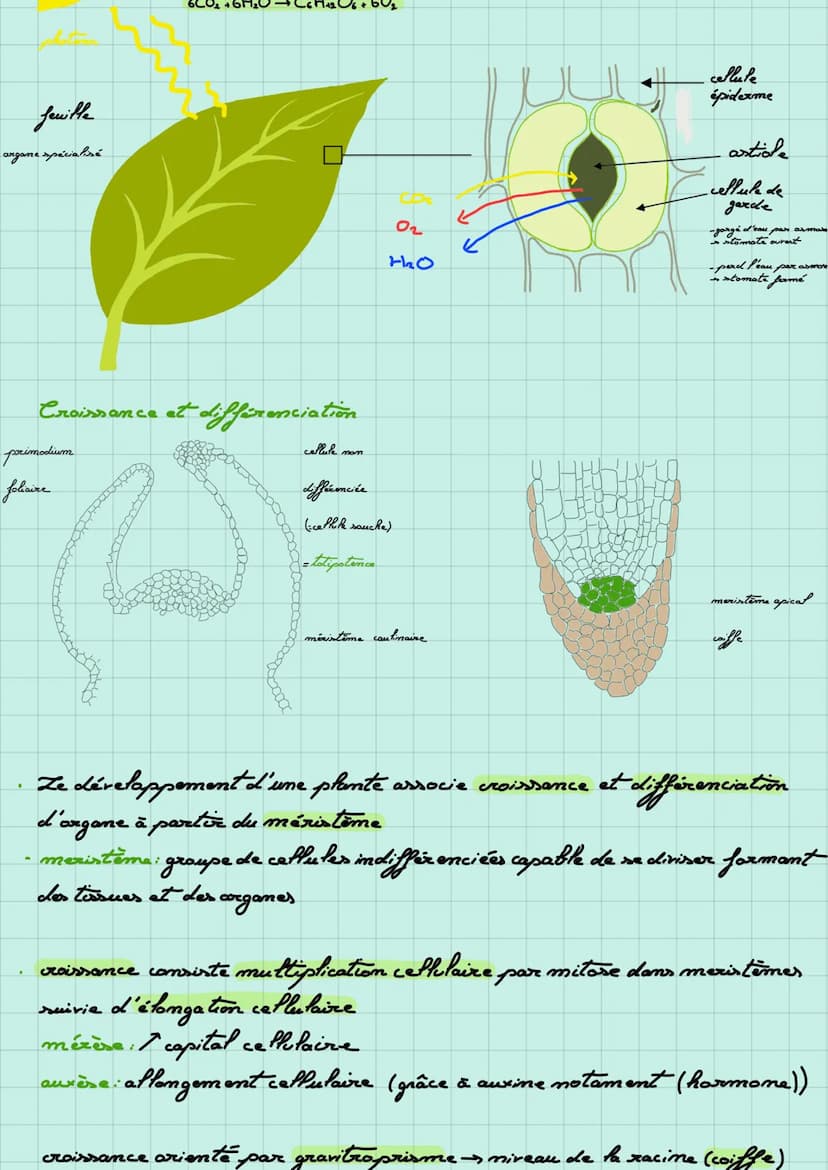 6CO₂ + 6H₂O → C₆H₁₂O₆ + 6O₂
photons
feuille
organe spécialisé
cellule
épiderme
ostiole
cellule de
garde
- gorgé d'eau par osmose
→ stomate ouvert
- perd l'eau par osmose
→ stomate fermé
CO₂
O₂
H₂O
Croissance et différenciation
primodium
foliaire
cellule non
différenciée
(=cellule souche)
= totipotence
méristème caulinaire
meristème apical
coiffe
· Le développement d'une plante associe croissance et différenciation
d'organe à partir du méristème
- meristème : groupe de cellules indifférenciées capable de se diviser formant
des tissues et des organes
· croissance consiste multiplication cellulaire par mitose dans meristèmes
suivie d'élongation cellulaire
mérèse : ↗ capital cellulaire
auxèse : allongement cellulaire (grâce à auxine notament (hormone))
croissance orienté par gravitroprisme → niveau de la racine (coiffe)